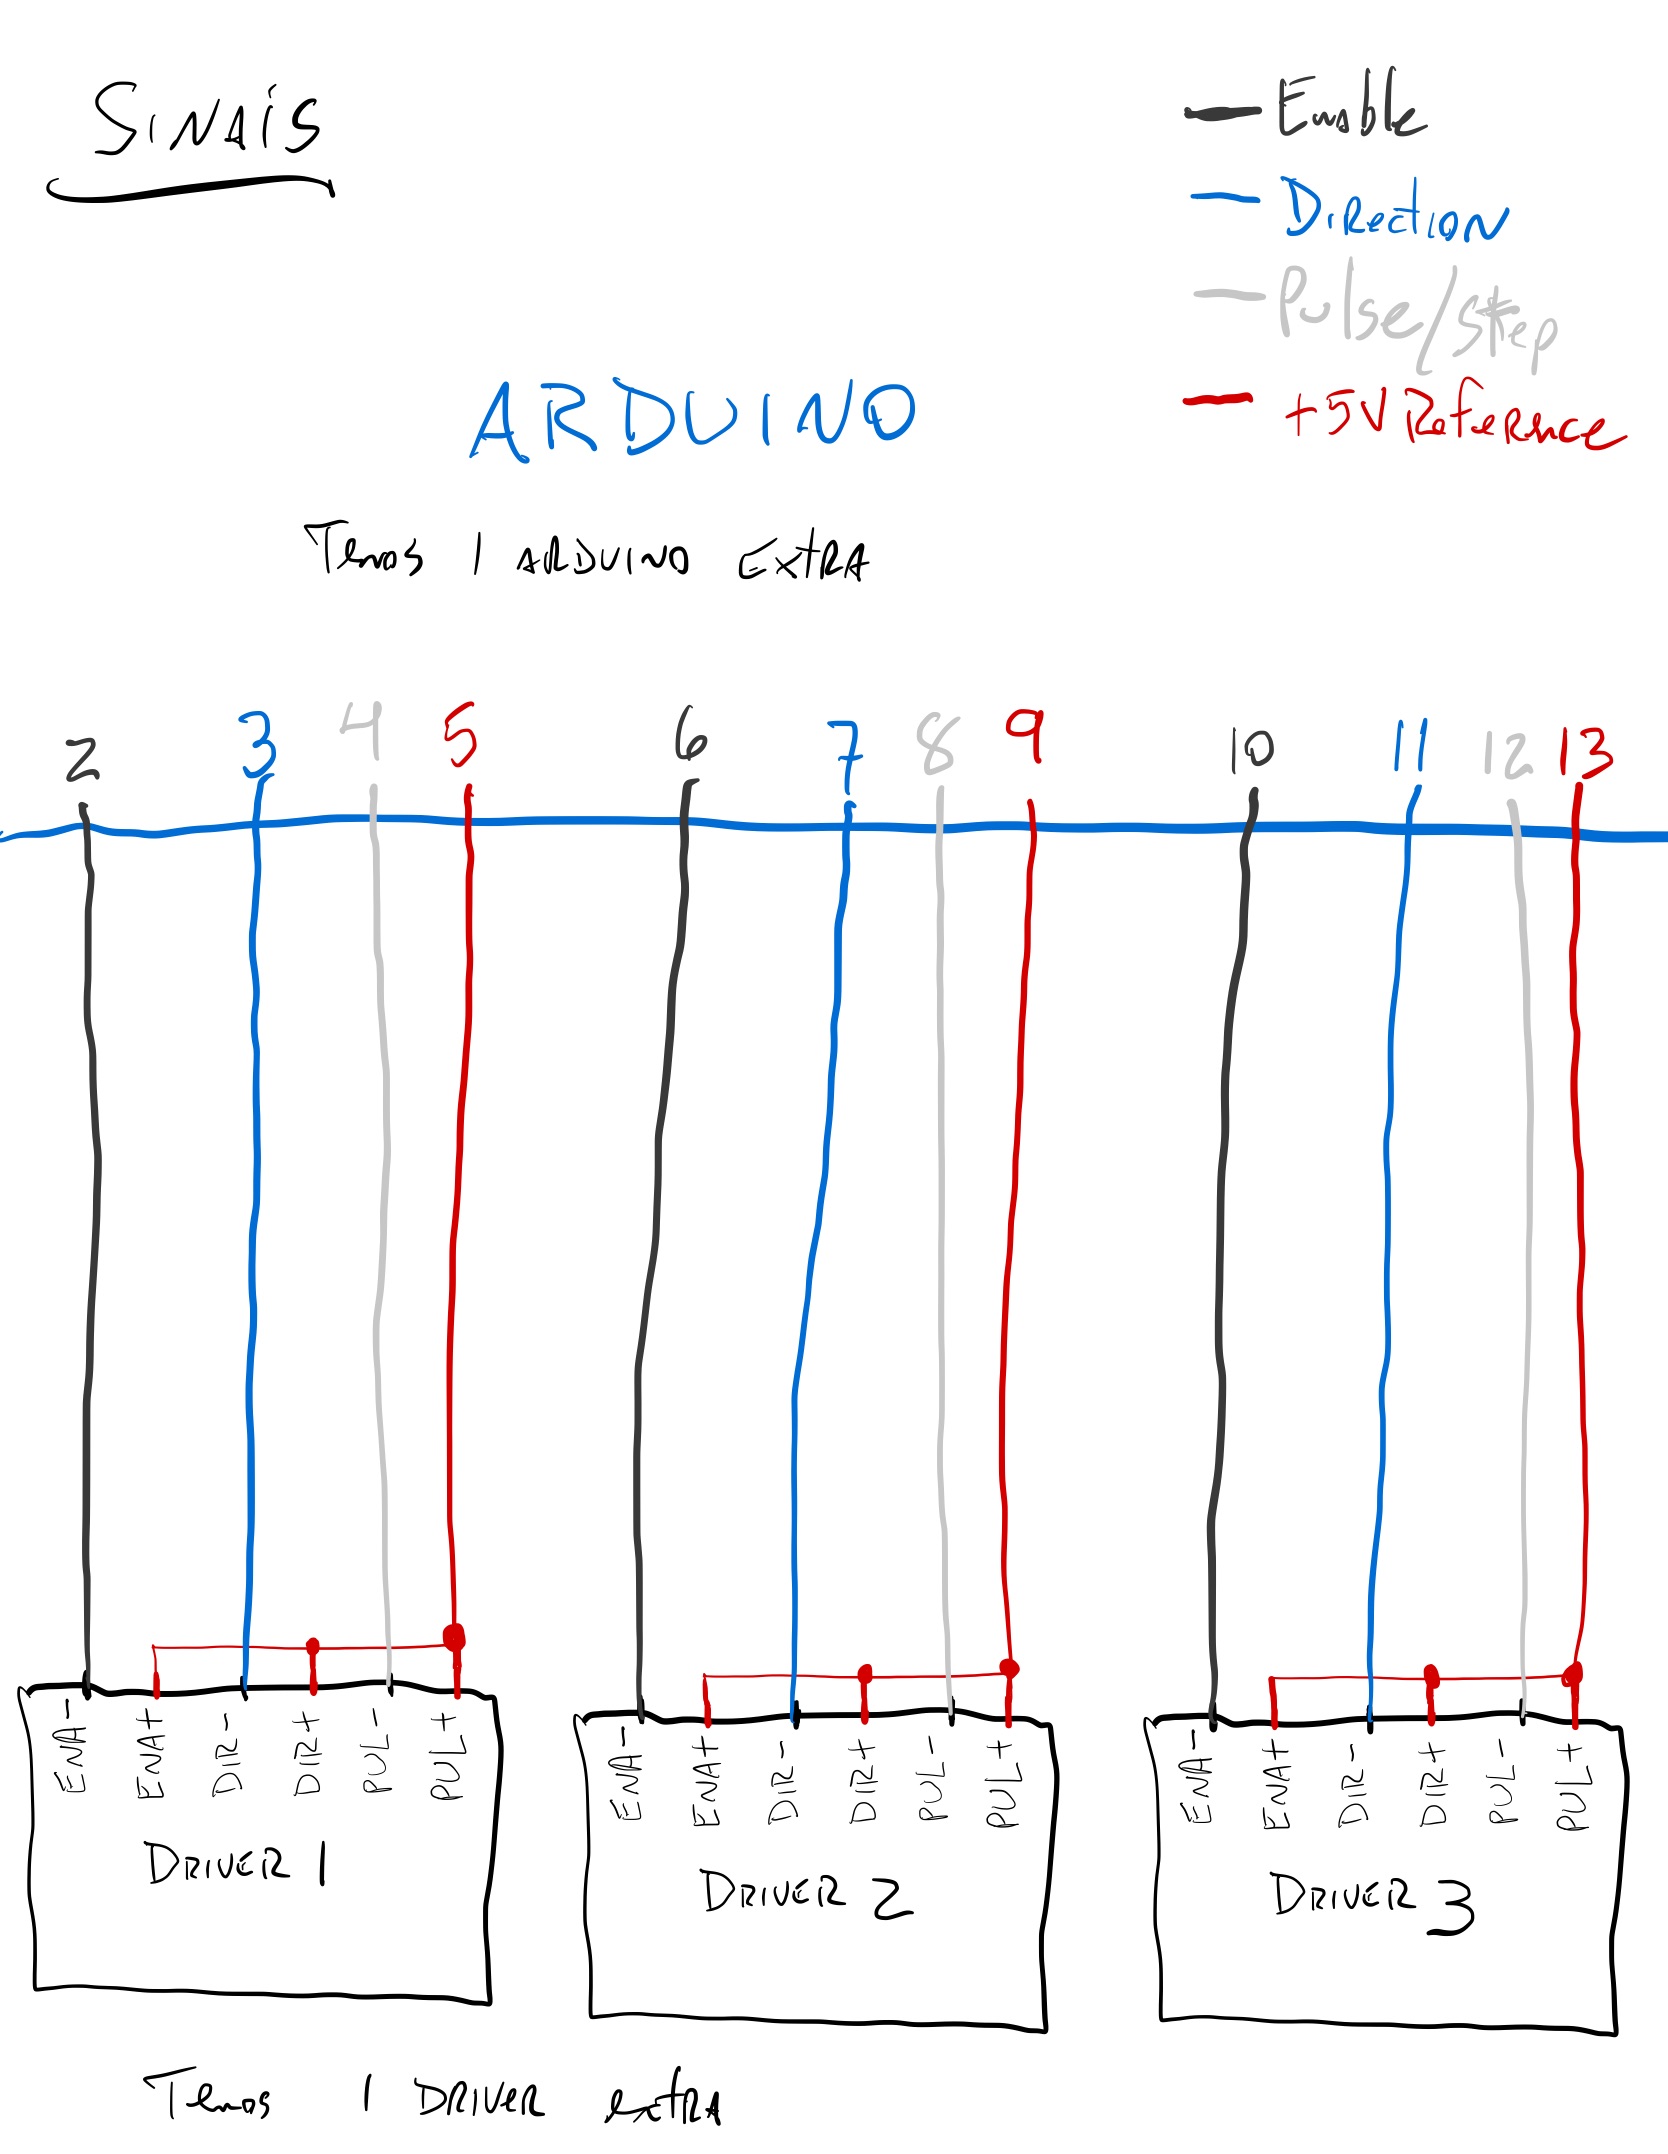 SINAIS
Enable
Direction
Pulse/Step
+5V Reference
ARDUINO
Temos 1 ARDUINO Extra
2 3 4 5 6 7 8 9 10 11 12 13
ENA- ENA+ DIR- DIR+ PUL- PUL+
ENA- ENA+ DIR- DIR+ PUL- PUL+
ENA- ENA+ DIR- DIR+ PUL- PUL+
DRIVER 1
DRIVER 2
DRIVER 3
Temos 1 DRIVER extra